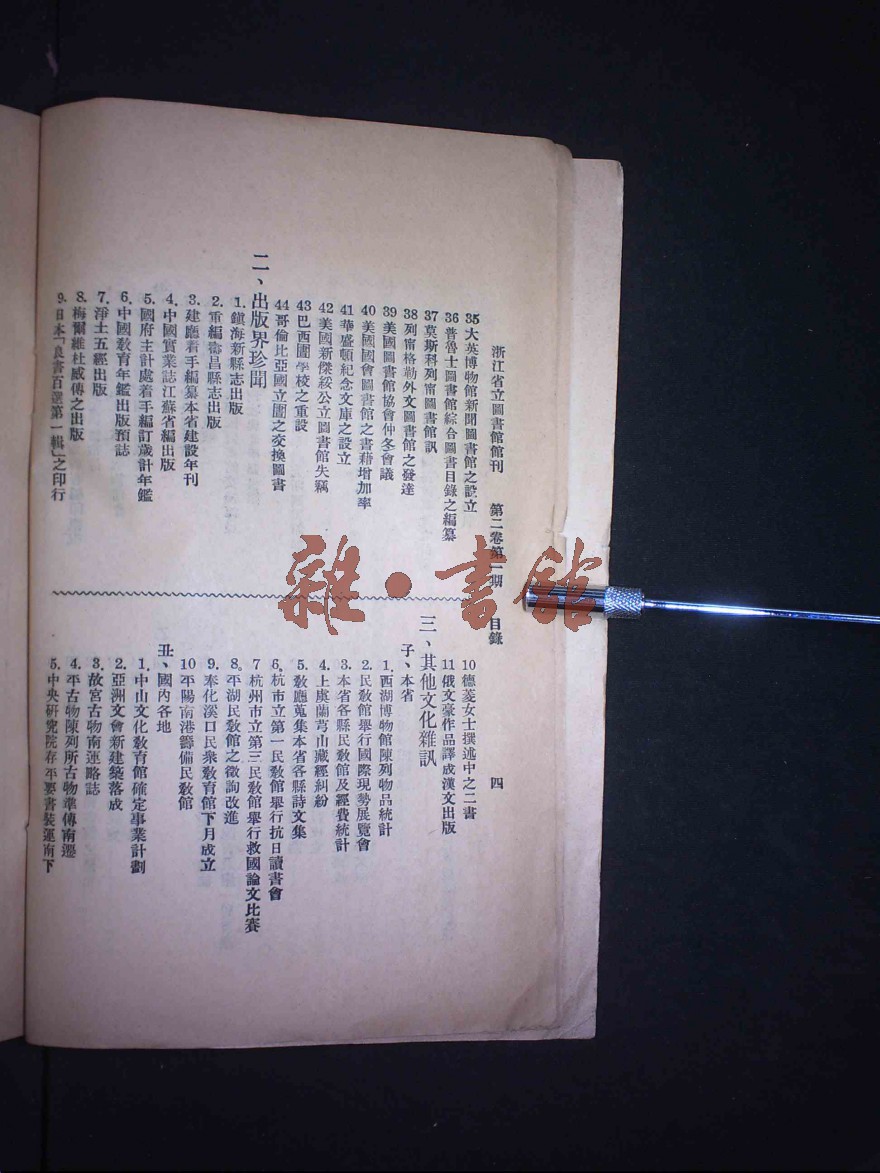 浙江省立圖書館館刊 第二卷第一期 目錄 四
35 大英博物館新聞圖書館之設立
36 普魯士圖書館綜合圖書目錄之編纂
37 莫斯科列甯圖書館訊
38 列甯格勒外文圖書館之發達
39 美國圖書館協會仲冬會議
40 美國國會圖書館之書藉增加率
41 華盛頓紀念文庫之設立
42 美國新傑綏公立圖書館失竊
43 巴西圕學校之重設
44 哥倫比亞國立圕之交換圖書
二、出版界珍聞
1. 鎮海新縣志出版
2. 重編壽昌縣志出版
3. 建廳着手編纂本省建設年刊
4. 中國實業誌江蘇省編出版
5. 國府主計處着手編訂歲計年鑑
6. 中國敎育年鑑出版預誌
7. 淨土五經出版
8. 梅爾維杜威傳之出版
9. 日本「良書百選第一輯」之印行
10 德菱女士撰述中之二書
11 俄文豪作品譯成漢文出版
三、其他文化雜訊
子、本省
1. 西湖博物館陳列物品統計
2. 民敎館舉行國際現勢展覽會
3. 本省各縣民敎館及經費統計
4. 上虞蘭芎山藏經糾紛
5. 敎廳蒐集本省各縣詩文集
6. 杭市立第一民敎館舉行抗日讀書會
7 杭州市立第三民敎館舉行救國論文比賽
8. 平湖民敎館之徵詢改進
9. 奉化溪口民衆敎育館下月成立
10 平陽南港籌備民敎館
丑、國內各地
1. 中山文化敎育館確定事業計劃
2. 亞洲文會新建築落成
3. 故宮古物南運略誌
4. 平古物陳列所古物準傳南遷
5. 中央硏究院存平要書裝運南下
雜·書館